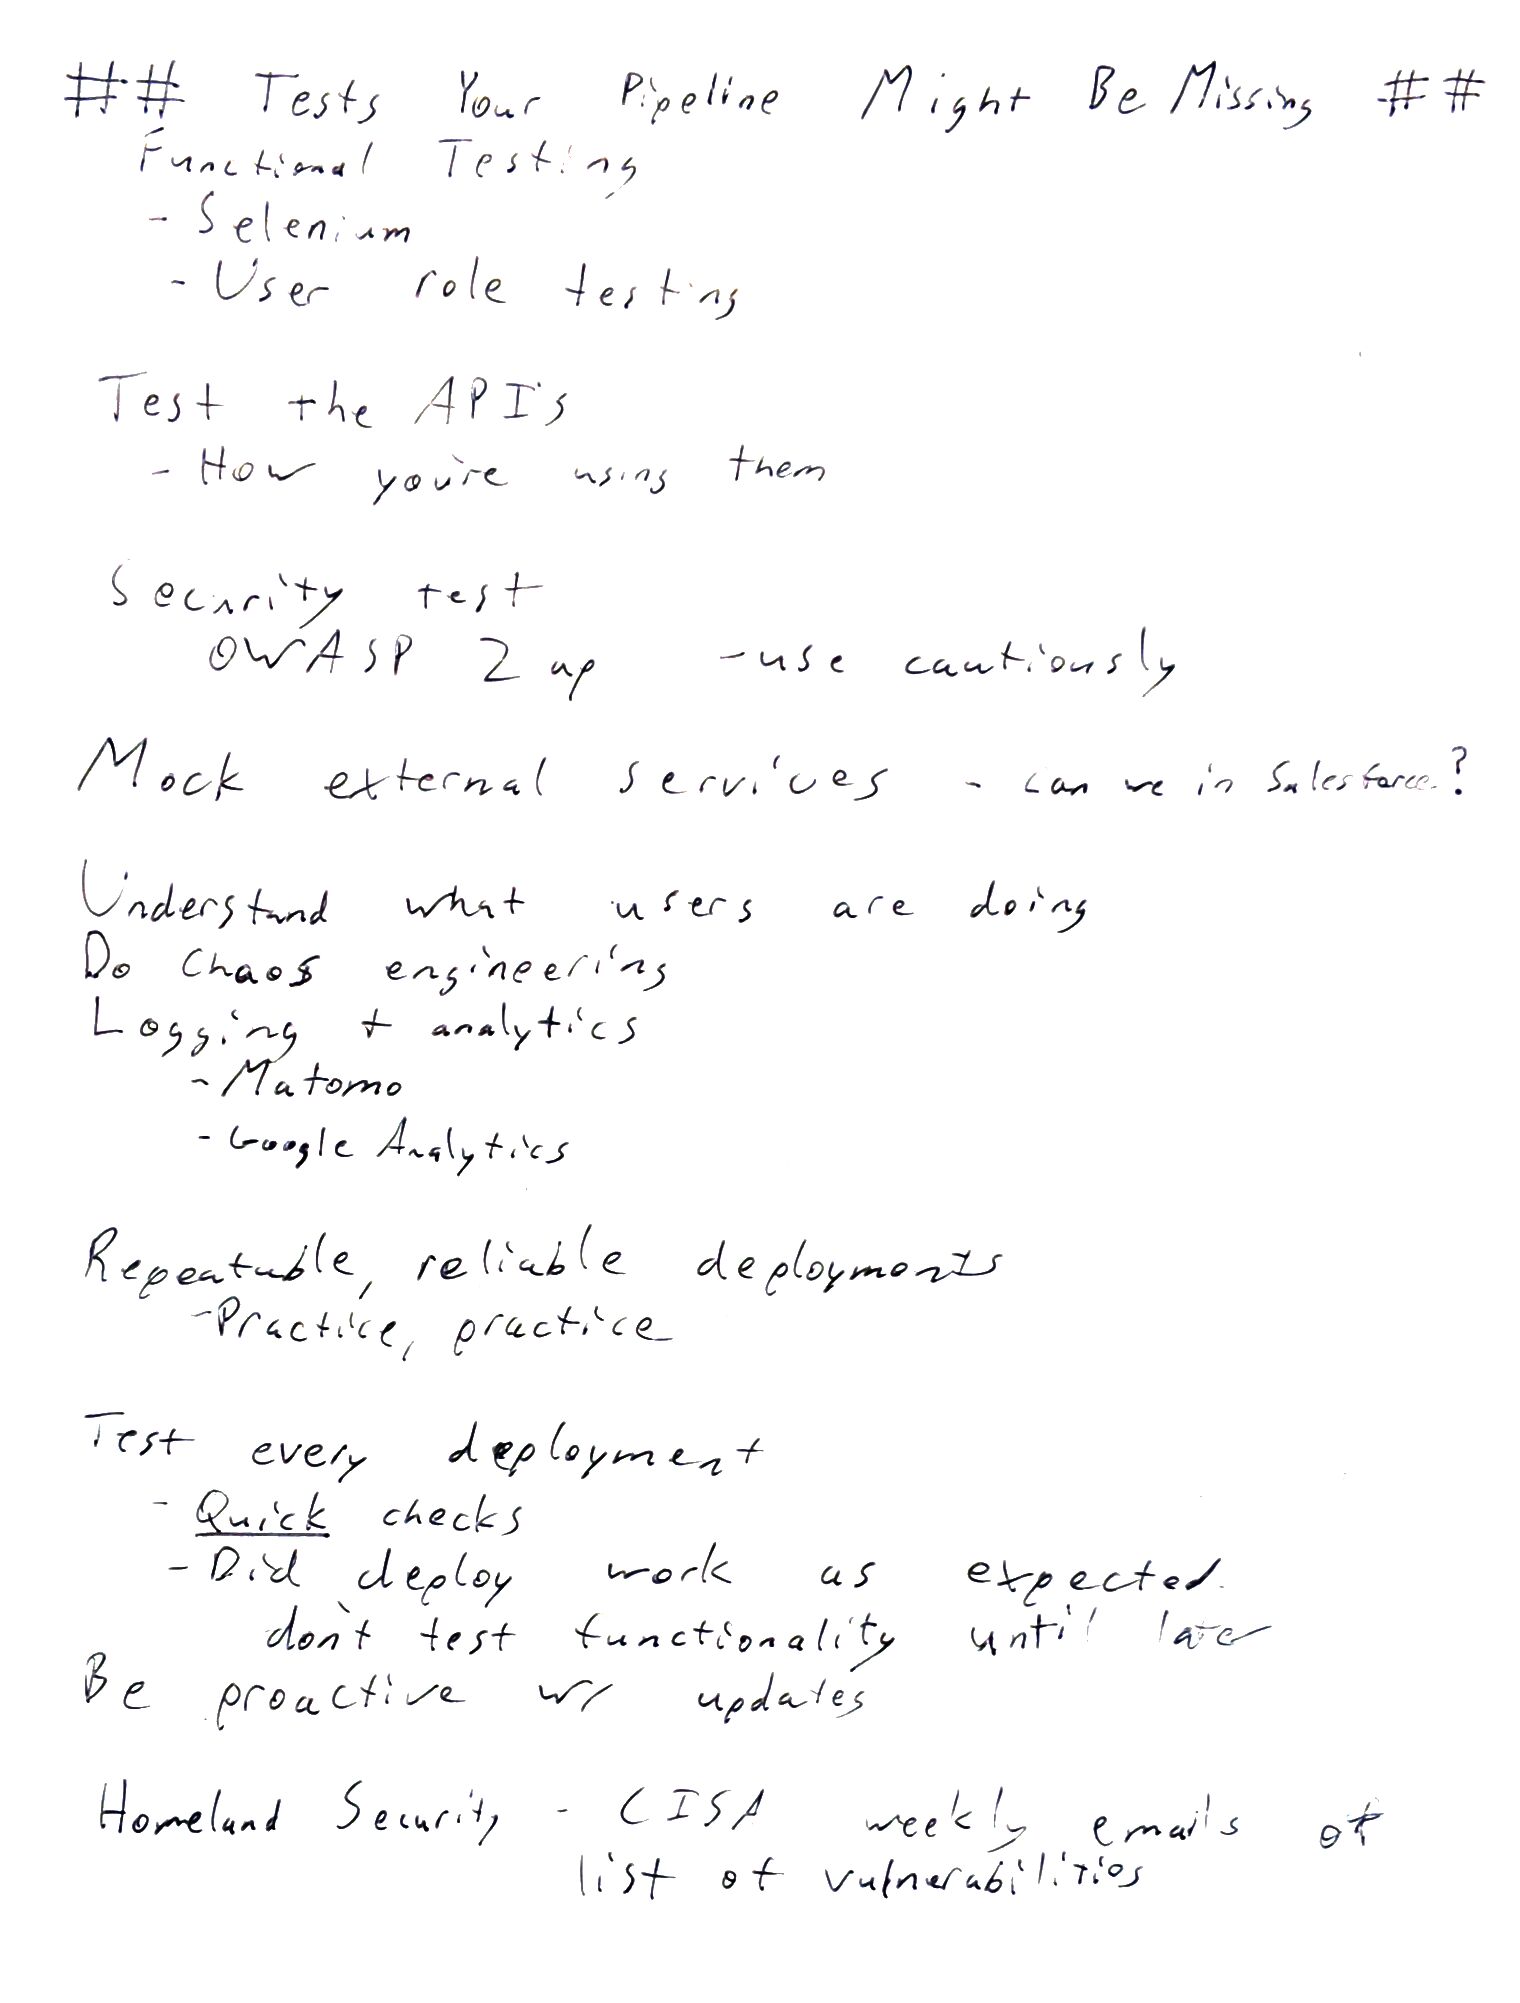 ## Tests Your Pipeline Might Be Missing ##
Functional Testing
- Selenium
- User role testing
Test the API's
- How you're using them
Security test
OWASP Zap - use cautiously
Mock external services - can we in Salesforce?
Understand what users are doing
Do chaos engineering
Logging + analytics
- Matomo
- Google Analytics
Repeatable, reliable deployments
- Practice, practice
Test every deployment
- Quick checks
- Did deploy work as expected.
don't test functionality until later
Be proactive w/ updates
Homeland Security - CISA weekly emails of
list of vulnerabilities